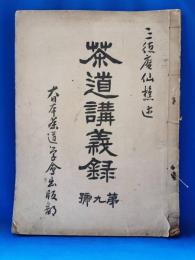 三徳庵仙樵述
茶道講義録
第九號
大日本茶道学會出版部